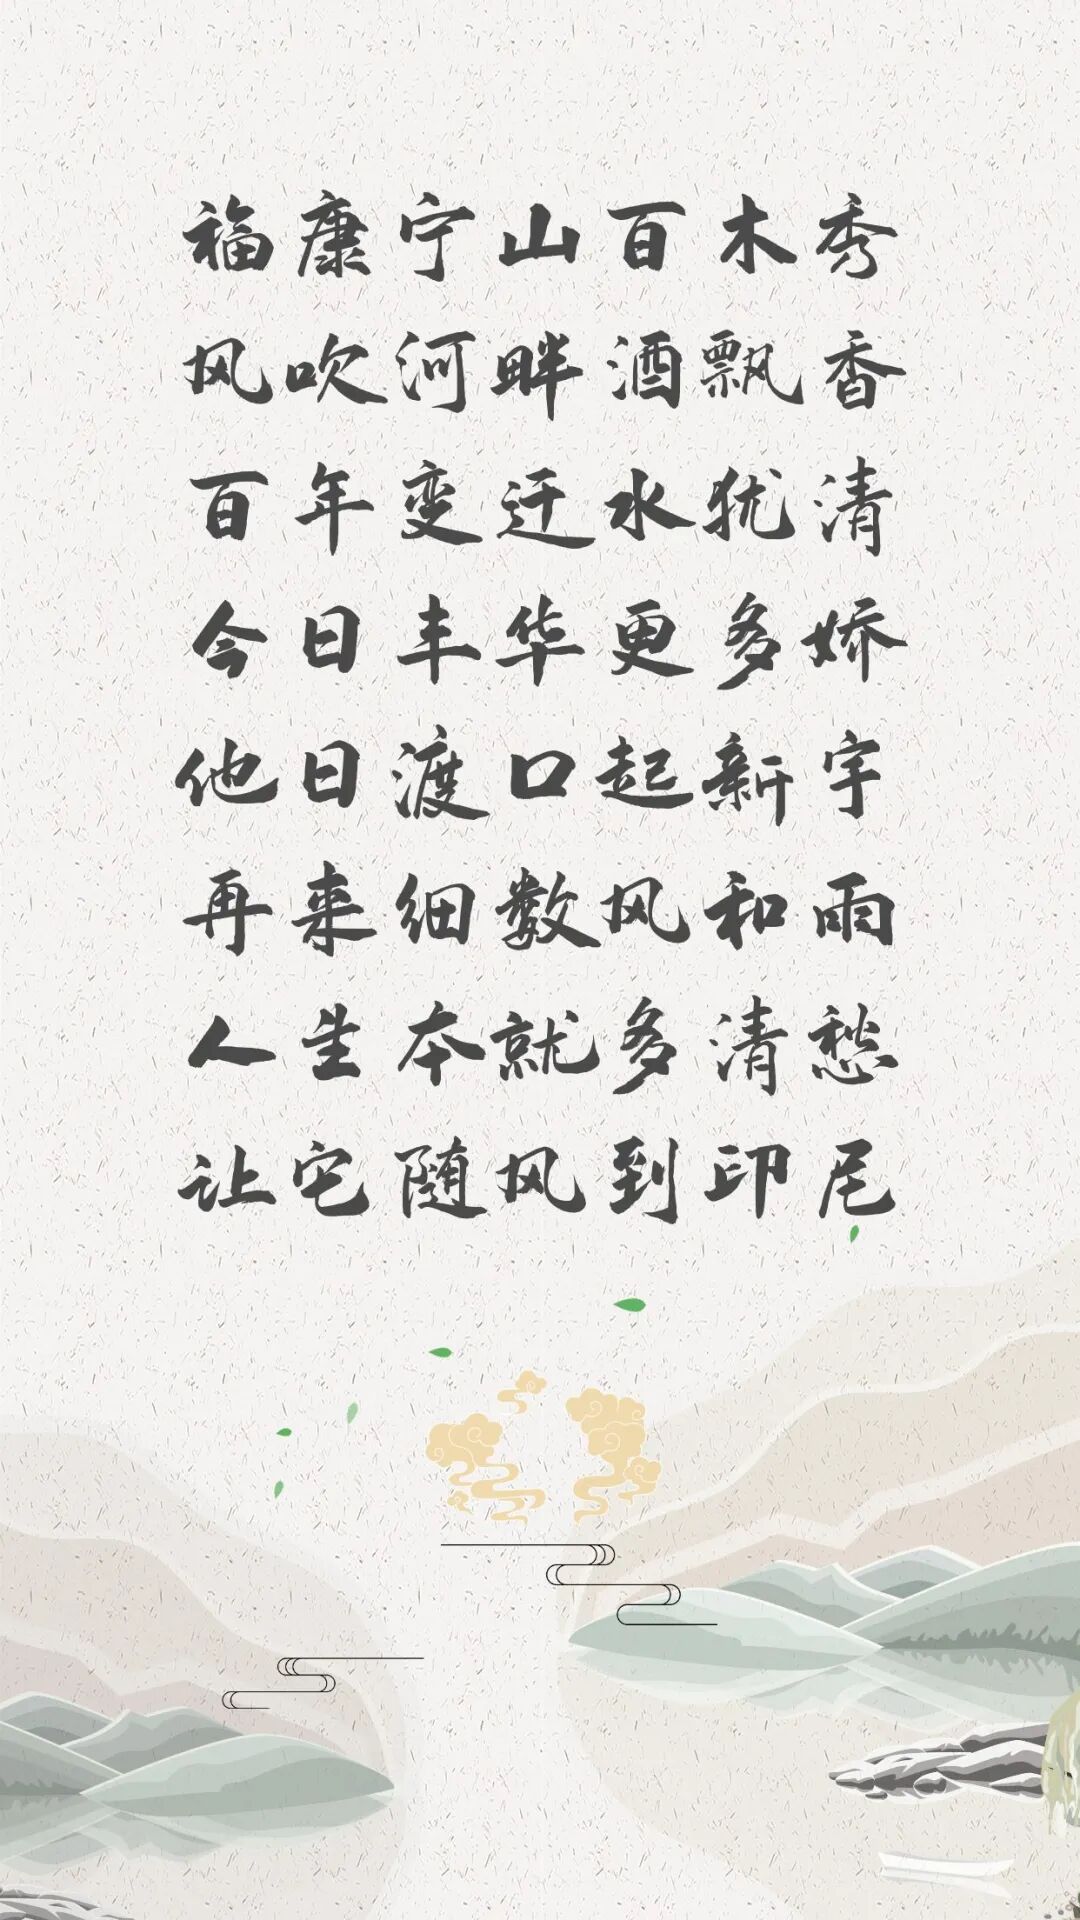 福康宁山百木秀
风吹河畔酒飘香
百年变迁水犹清
今日丰华更多娇
他日渡口起新宇
再来细数风和雨
人生本就多清愁
让它随风到印尼